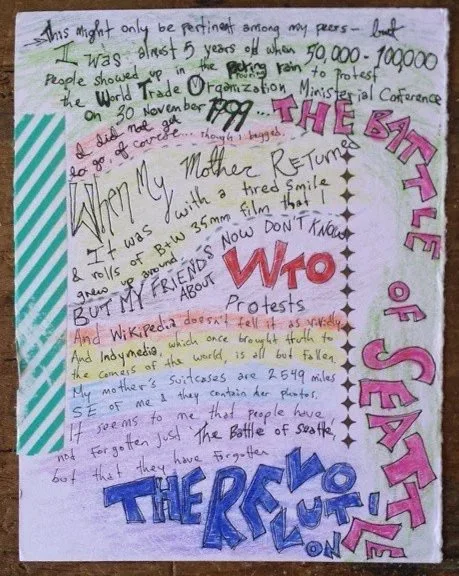 This might only be pertinent among my peers - but
I was almost 5 years old when 50,000 - 100,000
people showed up in the pouring rain to protest
the World Trade Organization Ministerial Conference
on 30 November 1999...
I did not get
to go of course... though i begged.
When My Mother Returned
It was with a tired smile
& rolls of B+W 35mm film that I
grew up around.
BUT MY FRIENDS NOW DON'T KNOW
ABOUT WTO
Protests
And Wikipedia doesn't tell it as vividly
And Indymedia, which once brought truth to
the corners of the world, is all but fallen.
My mother's suitcases are 2549 miles
SE of me & they contain her photos.
It seems to me that people have
not forgotten just 'The Battle of Seattle,
but that they have forgotten
THE REVOLUTION
THE BATTLE OF SEATTLE